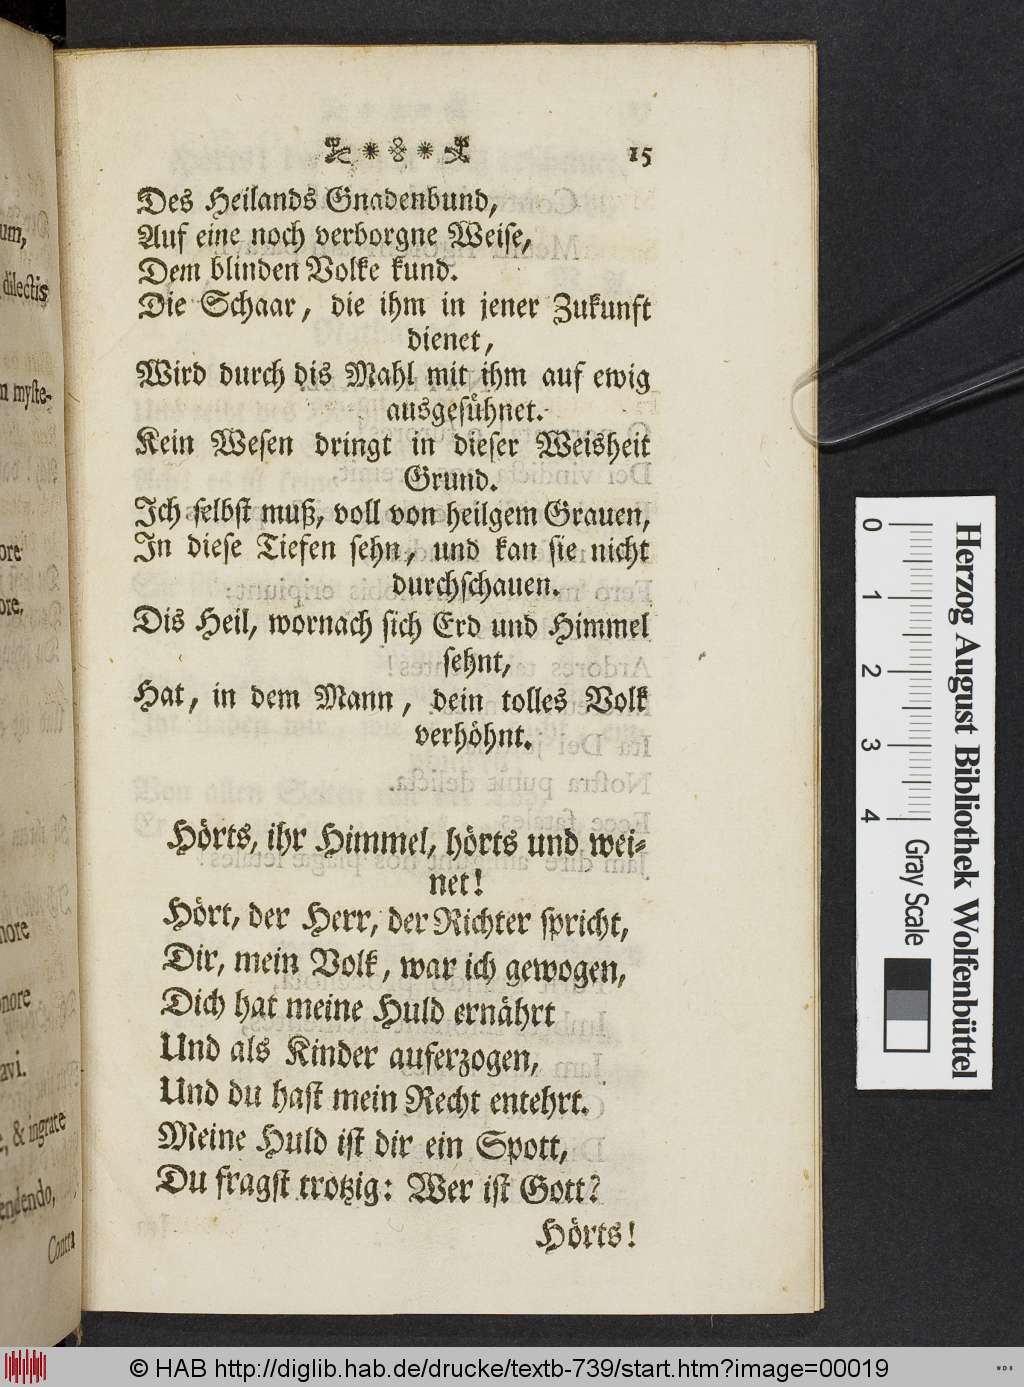 15
Des Heilands Gnadenbund,
Auf eine noch verborgne Weise,
Dem blinden Volke kund.
Die Schaar, die ihm in jener Zukunft
dienet,
Wird durch dis Mahl mit ihm auf ewig
ausgesühnet.
Kein Wesen dringt in dieser Weisheit
Grund.
Ich selbst muß, voll von heilgem Grauen,
In diese Tiefen sehn, und kan sie nicht
durchschauen.
Dis Heil, wornach sich Erd und Himmel
sehnt,
Hat, in dem Mann, dein tolles Volk
verhöhnt.
Hörts, ihr Himmel, hörts und wei-
net!
Hört, der Herr, der Richter spricht,
Dir, mein Volk, war ich gewogen,
Dich hat meine Huld ernährt
Und als Kinder auferzogen,
Und du hast mein Recht entehrt.
Meine Huld ist dir ein Spott,
Du fragst trotzig: Wer ist Gott?
Hörts!
um,
dilectis
myste-
ore
ore,
nore
nore
avi.
, & ingrate
endendo,
Contra
0 1 2 3 4
Gray Scale
Herzog August Bibliothek Wolfenbüttel
© HAB http://diglib.hab.de/drucke/textb-739/start.htm?image=00019